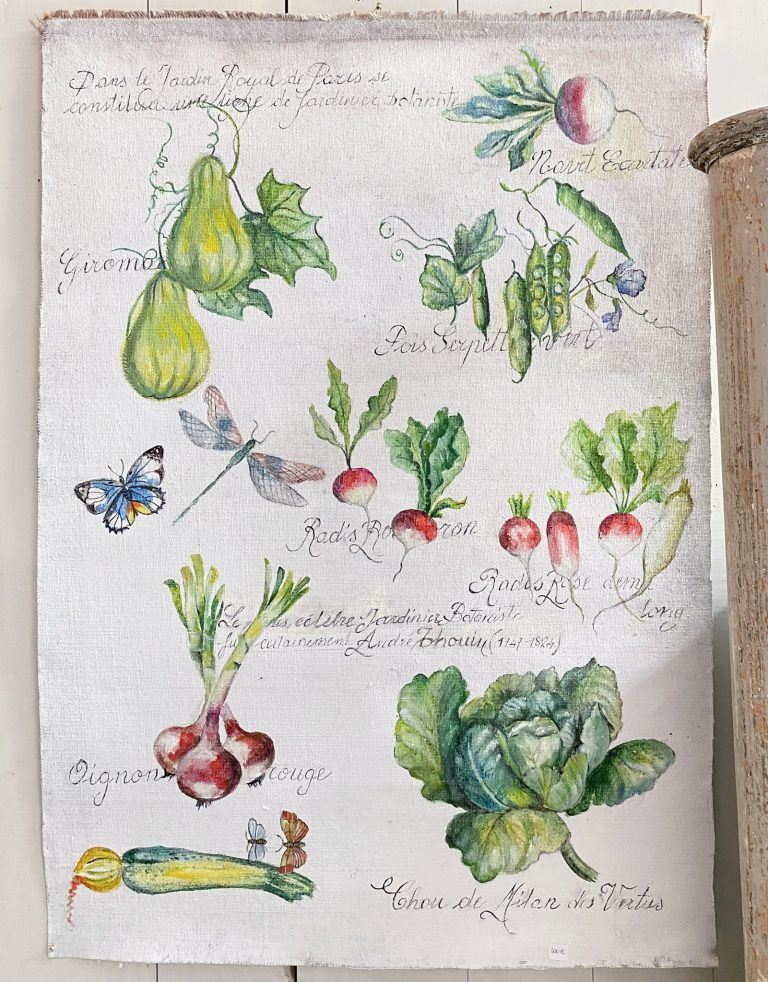 Dans le Jardin Royal de Paris se
constitua une ligne de Jardinier botaniste
Navet
Giromon
Pois Serpette vert
Radis Ro ron
Radis Rose demi
long
Le plus célèbre Jardinier Botaniste
fut certainement André Thouin (1747-1824)
Oignon rouge
Chou de Milan des Vertus